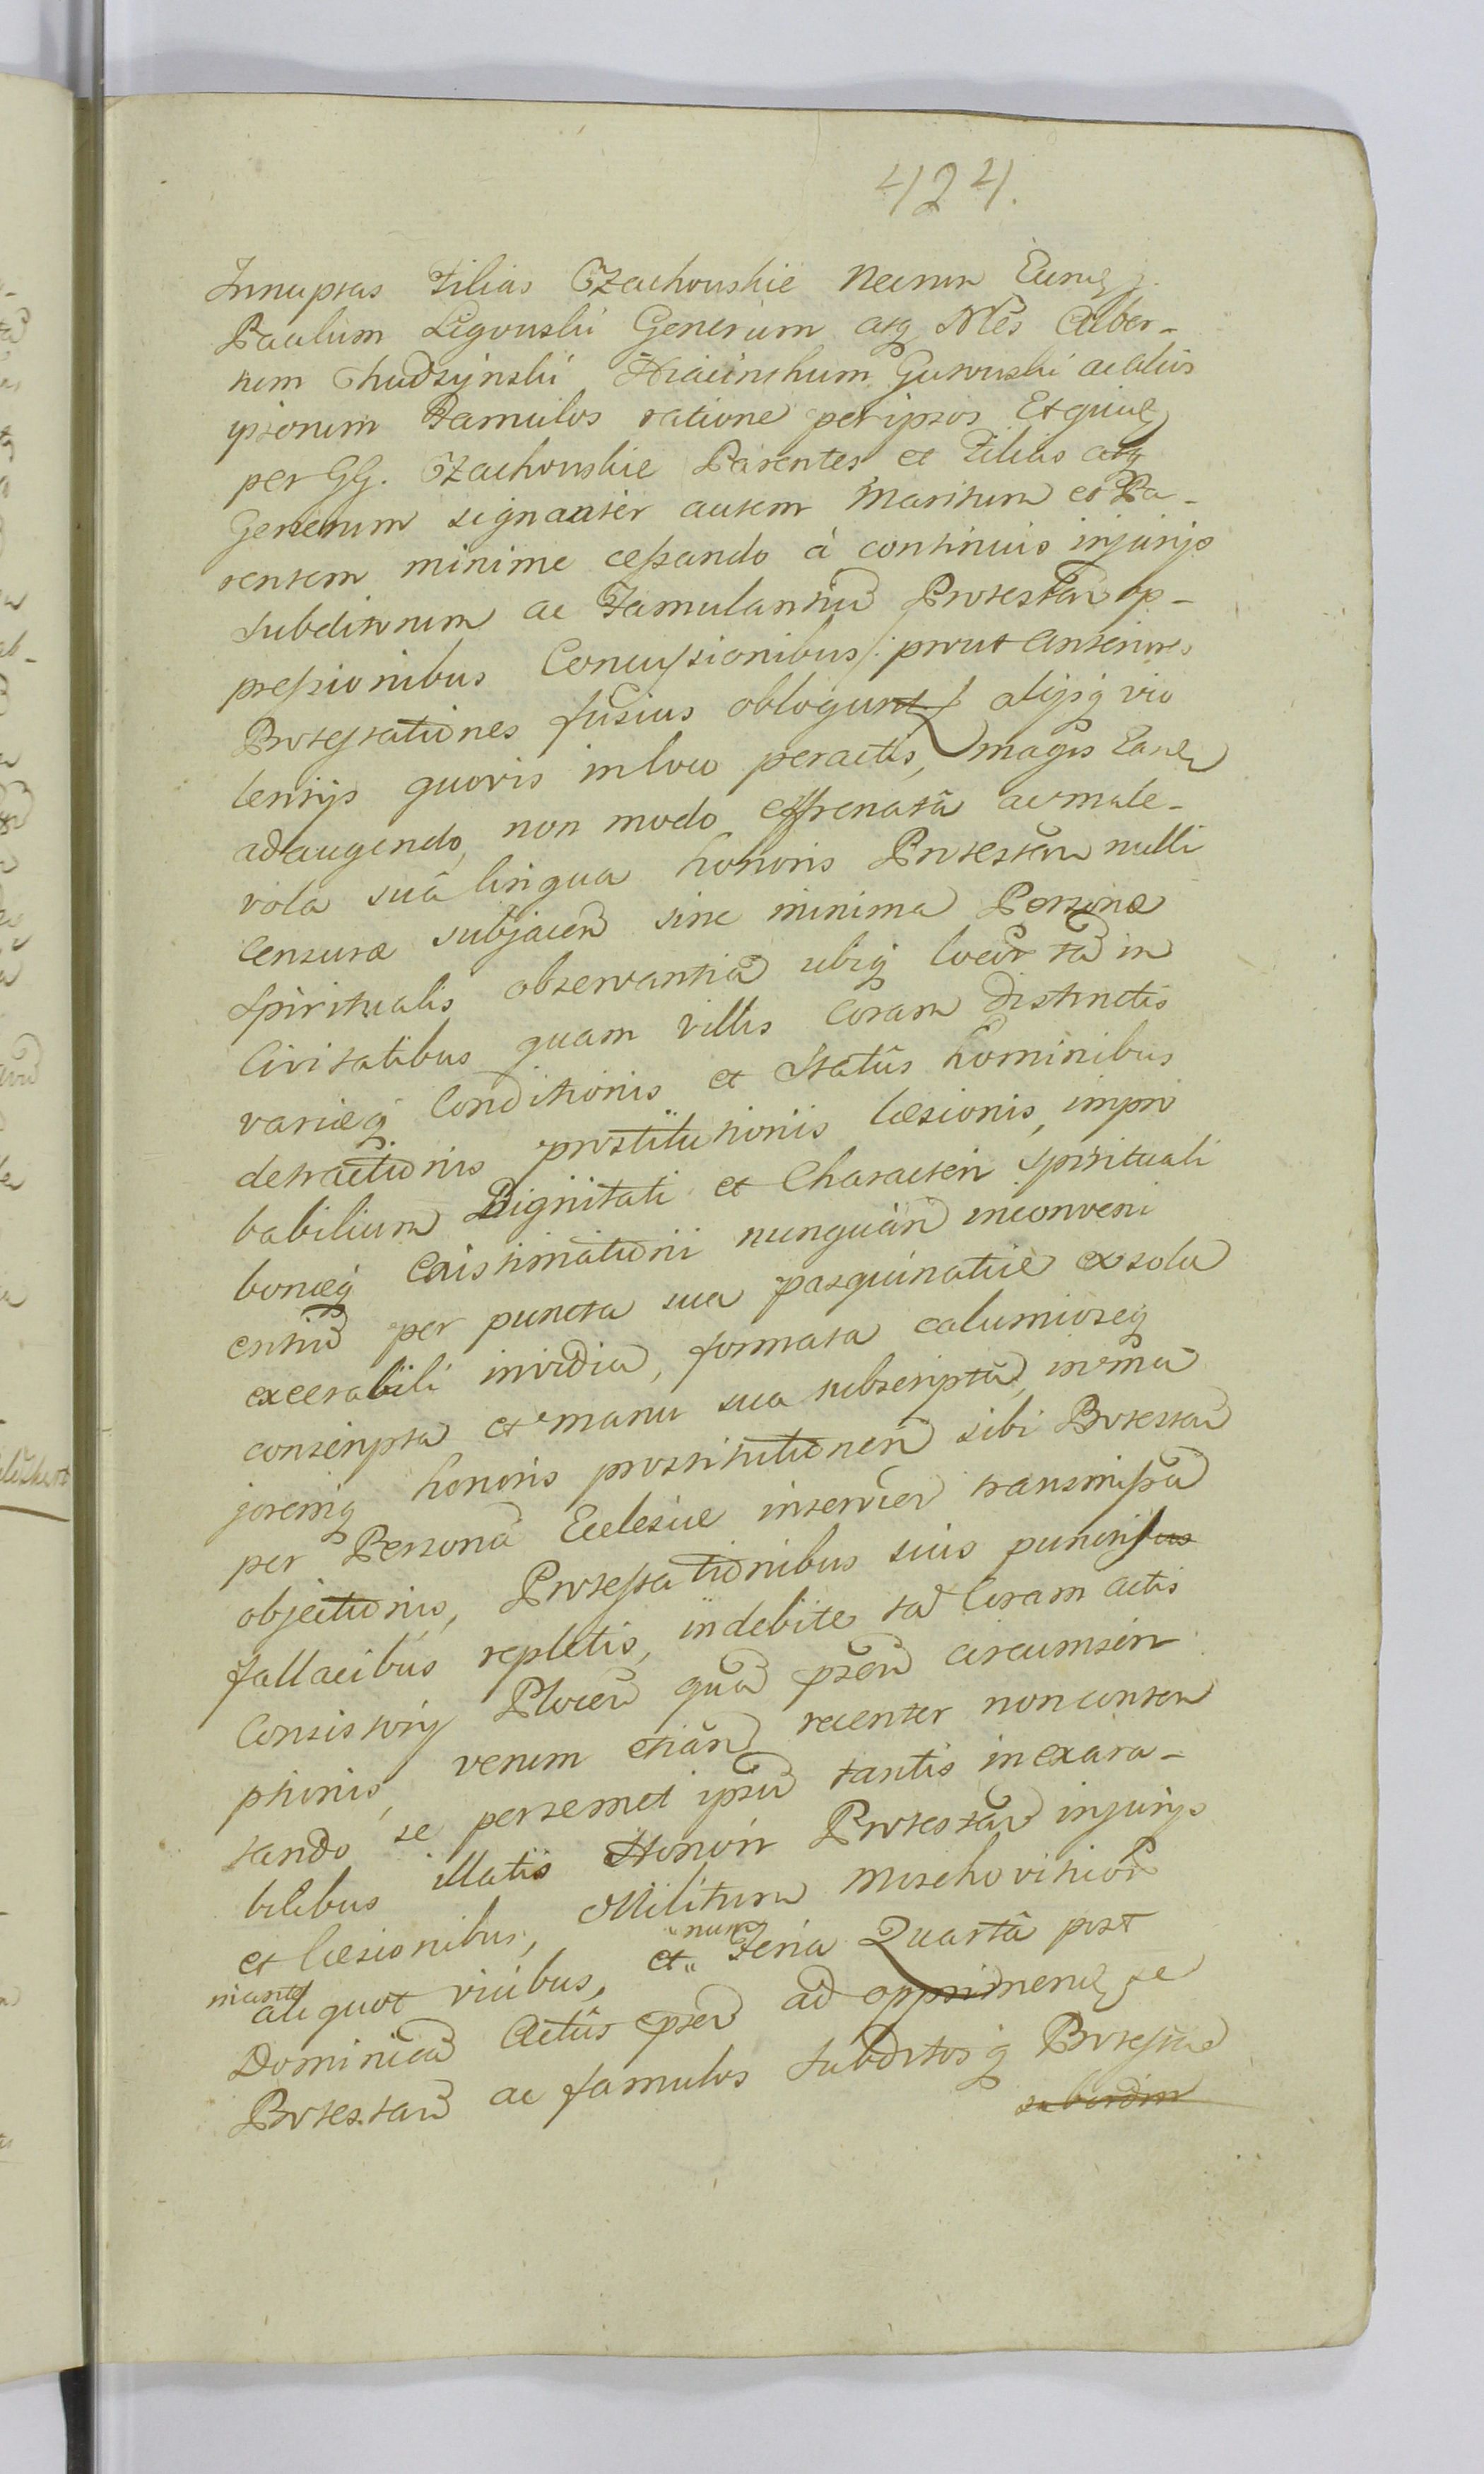 424.
Innuptas Filias Czachowskie Necnon
Paulum Ligowski Generum atq Nles Alber-
tum Chudzynski Hiacinthum Gutowski ac alios
ipsorum Famulos ratione per ipsos Et quidē
per GG. Czachowskie Parentes et Filias atq
Generum signanter autem Maritum et Pa-
rentem minime cessando à continuis injurijs
subditorum ac Famulantiū Protestan op-
pressionibus Concussionibus /: prout Anteriores
Protestationes fusius obloquunt :/ alijsq vio
lentijs quovis in loco peractis, magis Easdē
adaugendo, non modo effrenatâ ac male-
vola suâ lingua honoris Protestan nulli
Censuræ subjacen sine minima Personæ
Spiritualis observantiâ ubiq locor tā in
Civitatibus quam villis Coram distinctis
variæq Conditionis et Statûs hominibus
detractionis prostitutionis læsionis, impro
babilium Dignitati et Characteri Spirituali
bonæq Existimationi nunquàm inconveni
entiū per puncta sua pasquinatiie ex sola
execrabili invidia, formata calumioseq
conscripta et manu sua subscripta, in ma
joremq honoris prostitutionem sibi Protestan
per Personā Ecclesiæ inservien transmissa
objectionis, Protestationibus suis punctis
fallacibus repletis, indebite tā Coram Actis
Consistorij Plocen quā psen circumscri
ptionis, verum etiàm recenter non conten
tando se per semet ipsū tantis inexara-
bilibus illatis Honori Protestan injurijs
et læsionibus, Militum Moschoviticor
aliquot vicibus, et nunc Feria Quartâ post
Dominicam Actûs psen ad opprimend se
Protestan ac famulos subditosq Protestan